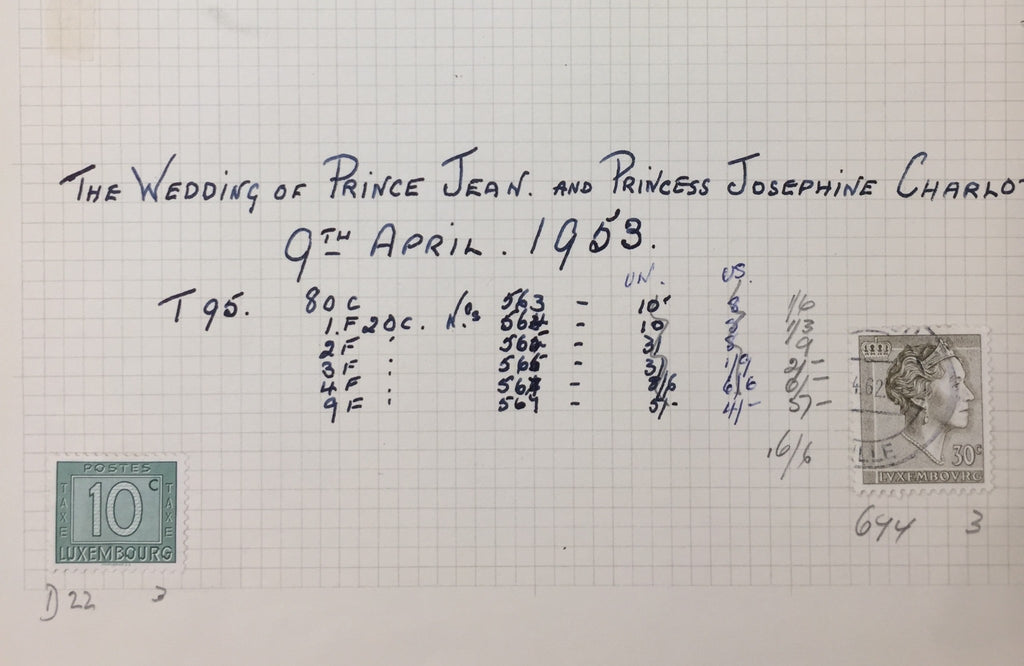 THE WEDDING OF PRINCE JEAN. AND PRINCESS JOSEPHINE CHARLO
9TH APRIL. 1953.
UN. US.
T 95. 80 C 563 - 10 8 1/6
1. F 20 C. Nos 564 - 10 1/3
2 F " 565 - 3/ 9
3 F " 566 - 3/ 1/9 2/-
4 F " 8/6 6/6 6/-
9 F " - 5/- 4/- 5/-
16/6
POSTES
10 C
TAXE
TAXE
LUXEMBOURG
D 22 3
4.62
LLE
30c
LUXEMBOURG
644 3